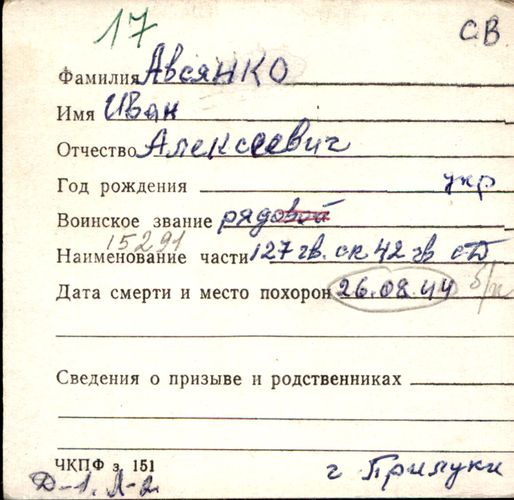 17 СВ
Фамилия Авсянко
Имя Иван
Отчество Алексеевич
Год рождения укр
Воинское звание рядовой
15291
Наименование части 127 гв. сп 42 гв сД
Дата смерти и место похорон 26.08.44 б/п
Сведения о призыве и родственниках
ЧКПФ з. 151 г Прилуки
Д-1. Л-2